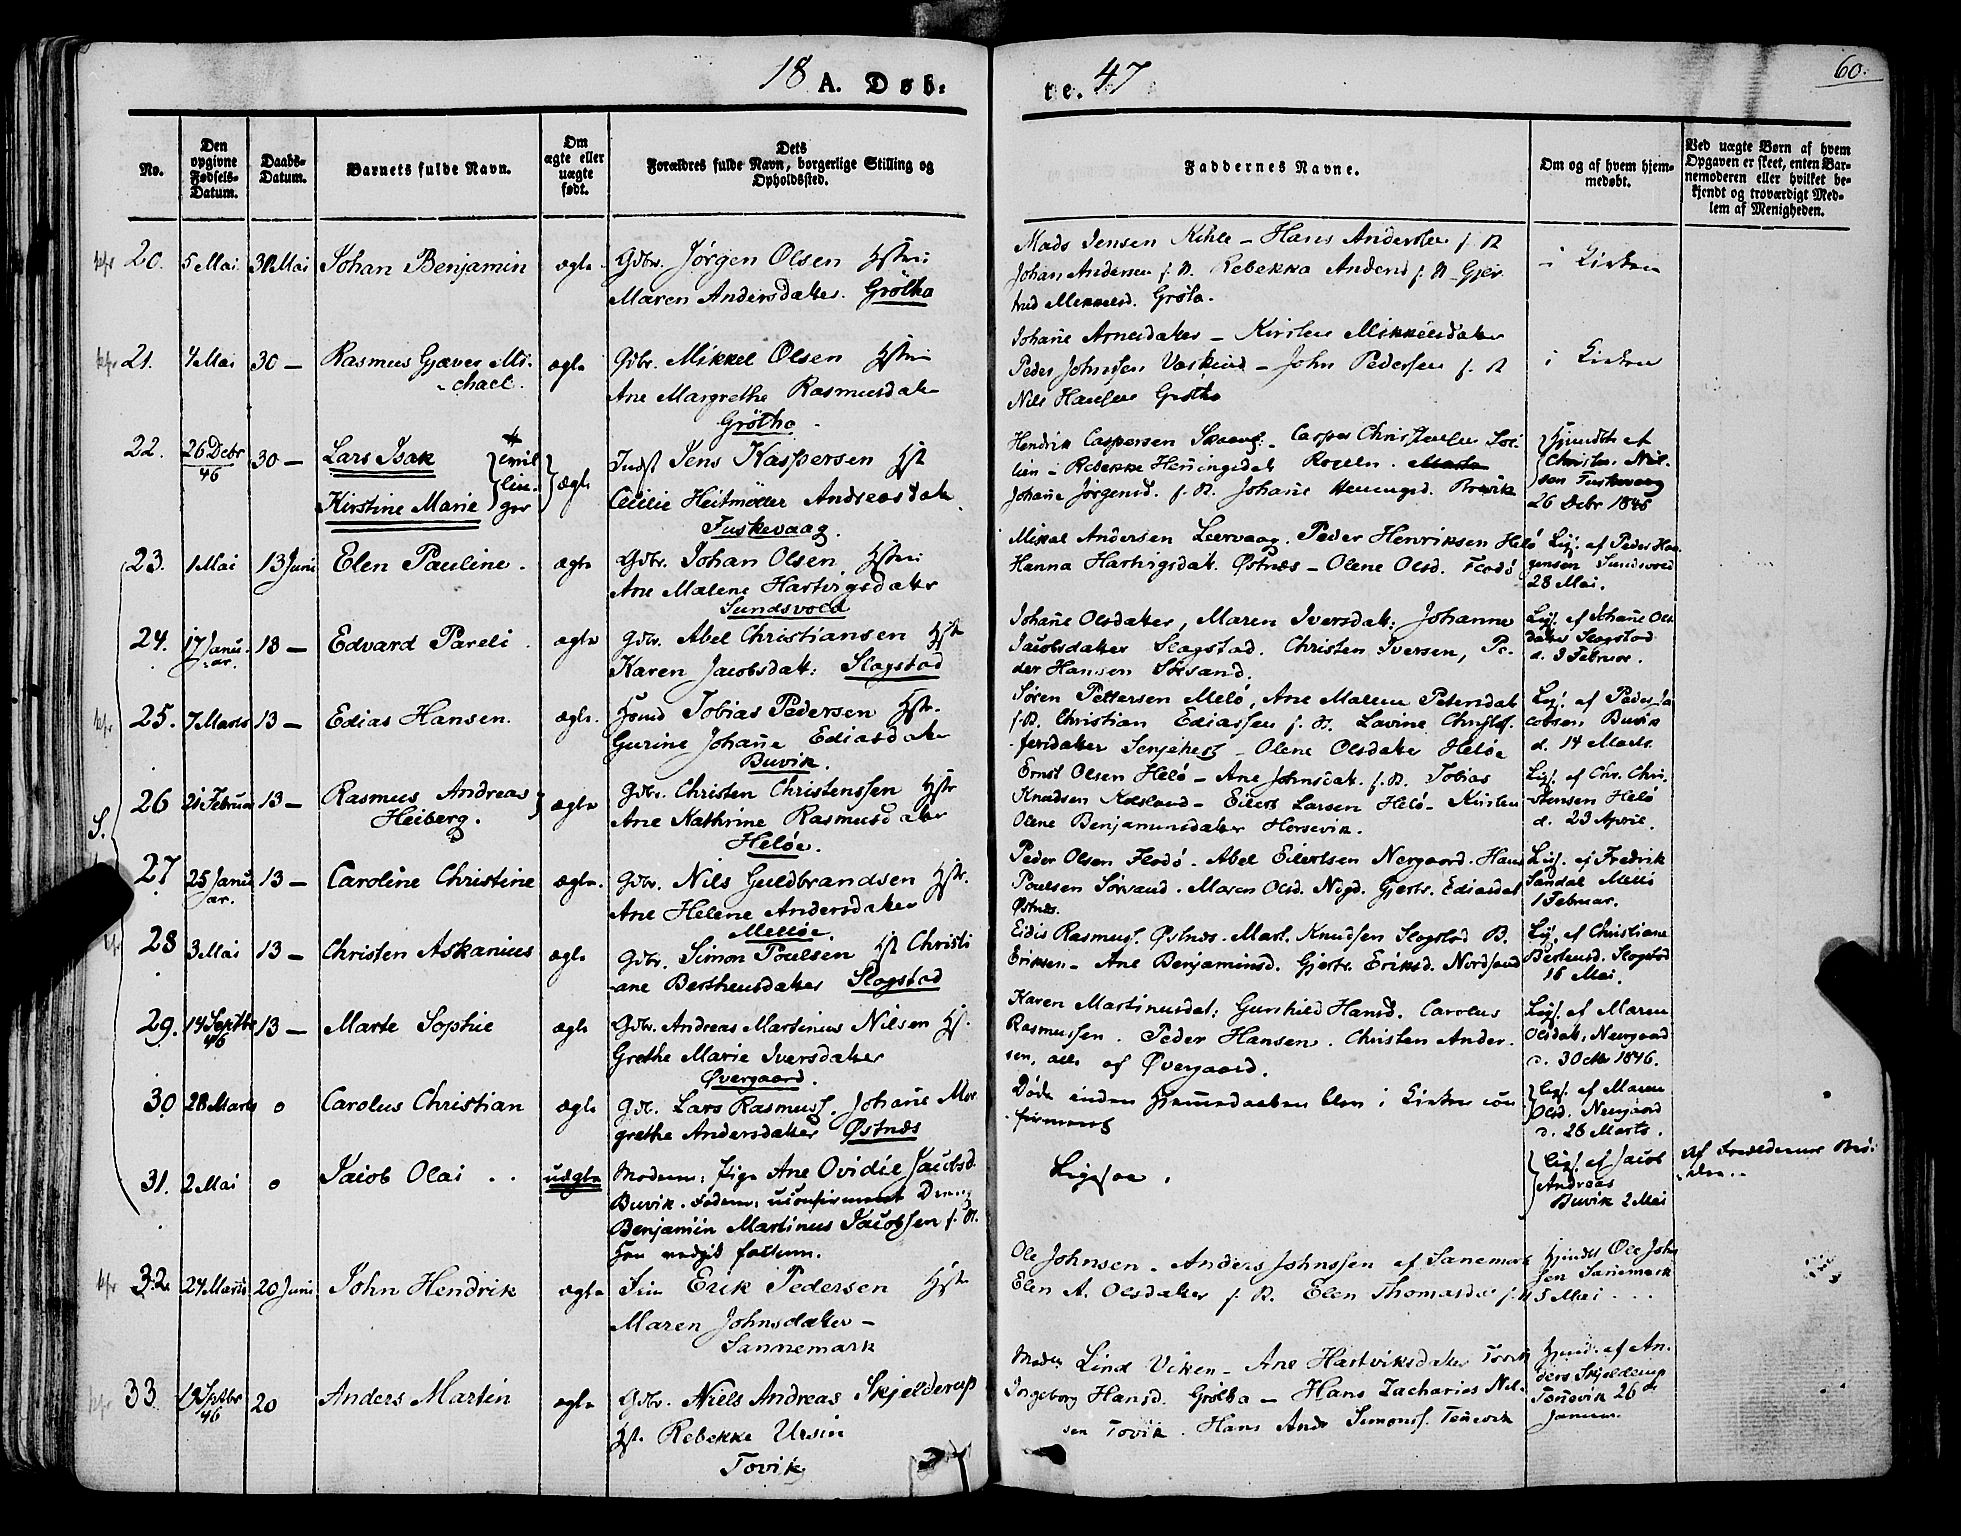 18 A. Døb=
te. 47
60.
No.
Den opgivne Fødsels-Datum.
Daabs-Datum.
Barnets fulde Navn.
Om ægte eller uægte født.
Dets Forældres fulde Navn, borgerlige Stilling og Opholdssted.
Faddernes Navne.
Om og af hvem hjemmedøbt.
Ved uægte Børn af hvem Opgaven er skeet, enten Barnemoderen eller hvilket bekjendt og troværdigt Medlem af Menigheden.
20. 5 Mai 30 Mai Johan Benjamin ægte Gdbr. Jørgen Olsen Hstr:
Maren Andersdatter. Grötho
Mads Jensen Kihle – Hans Andersen f. St
Johan Andersen f. St. Rebekka Andersd f. St Gjer
trud Mikkelsd. Gröto.
i Kirken
21. 4 Mai 30 – Rasmus Gjæver Mi-
chael.
ægte Gdbr. Mikkel Olsen Hstr
Ane Margrethe Rasmusdatr
Grötho
Johane Arnesdatter – Kirsten Mikkelsdatter
Peder Johnsen – John Pedersen f. St
Nils Hansen Grötho
i Kirken
22. 26 Debr 46 30 – Lars Isak
Kirstine Marie
tvil
lin-
ger
ægte Indst Jens Kaspersen Hst
Cecilie Heitmöller Andreasdatr
Tuskevaag.
Hendrik Caspersen – Casper Christensen
Rebekke Henningsdat
Johane Jørgensd. f. St. Johane Henningsd. Brevik
Hjemdt af
Christen Nil-
sen Tuskevaag
26 Debr 1846
23. 1 Mai 13 Juni Elen Pauline. ægte Gdbr. Johan Olsen, Hstr:
Ane Malene Hartvigsdatter
Sundsvold
Mikal Andersen Leervaag. Peder Henriksen Helö
Hanna Hartvigsdatt. Østnæs – Olene Olsd. Flodö
Lig. af Peder Haa
gensen Sundsvold
28 Mai.
24. 17 Janu-
ar.
13 – Edvard Pareli ægte Gdbr. Abel Christiansen Hstr
Karen Jacobsdatt: Slagstad
Johane Olsdatter, Maren Iversdatt: Johanne
Jacobsdatter Slagstad. Christen Iversen, Pe-
der Hansen Sörsand.
Lig. af Johane Ols
datter Slagstad
d. 3 Februar.
25. 7 Marts 13 – Edias Hansen. ægte. Hsmd Tobias Pedersen Hstr.
Gurine Johane Ediasdatter
Buvik.
Sören Pettersen Melö, Ane Malene Petersdat
f. St. Christian Ediassen f. St. Lavine Christof-
fersdatter Senjehest – Olene Olsdatter Helöe
Lig. af Peder Ja
cobsen Buvik
d. 14 Marts.
26 21 Februar 13 – Rasmus Andreas
Heiberg.
ægte Gdbr. Christen Christenssen Hstr
Ane Kathrine Rasmusdatter
Helöe.
Ernst Olsen Helö – Ane Johnsdat. f. St. Tobias
Knudsen – Eilert Larsen Helö – Kirsten
Olene Benjaminsdatter Horsevik.
Lig. af Chr. Chri-
stensen Helö
d. 23 April.
27 25 Janu
ar.
13 – Caroline Christine ægte. Gdbr. Nils Guldbrandsen Hstr.
Ane Helene Andersdatter
Mellöe.
Peder Olsen Flodö – Abel Eilertsen Nergaard. Hans
Poulsen Sörsand. Maren Olsd. Ngd. Gjertr. Ediasdat
Østnæs.
Lig. af Fredrik
Sandal Mellö
1 Februar.
28 3 Mai 13 – Christen Askanius ægte Gdbr. Simon Poulsen Hst Christi
ane Berthensdatter Slagstad
Eidis Rasmuss. Østnæs. Mart. Knudsen Slagstad B.
Eriksen – Ane Benjaminsd. Gjertr. Eriksd. Nordsand
Lig. af Christiane
Berthensd. Slagstad
16 Mai.
29. 14 Septbr 46 13 – Marte Sophie ægte Gdbr. Andreas Martinius Nilsen Hst.
Grethe Marie Iversdatter
Øvergaard.
Karen Martinusdat: Gunhild Hansd. Carolus
Rasmussen. Peder Hansen. Christen Ander-
sen, alle af Øvergaard.
Lig. af Maren
Olsdatt: Neergaard
1846.
30 28 Marts o Carolus Christian ægte Gdb. Lars Rasmuss. Johane Mar
grethe Andersdatter Østnæs
Døde inden Hjemmedaaben blev i Kirken con
firmeret
Lig. af Maren
Olsd. Neergaard
d. 28 Marts.
31. 2 Mai o Jacob Olai .. uægte Moderen: Pige Ane Ovidie Jacobsd.
Buvik. Faderen: uconfirmeret Dreng
Benjamin Martinus Jacobsen f. St.
Ligesaa.
Lig. af Jacob
Andreas
Buvik 2 Mai
Af Forældrenes
32 24 Marts 20 Juni John Hendrik ægte Erik Pedersen Hstr
Maren Johnsdatter –
Sannemark
Ole Johnsen – Anders Johnssen af Sanemark
Elen A. Olsdatter f. St. Elen Thomasdr f. St
Hjemdt Ole John
sen Sanemark
5 Mai . . .
33 13 Septbr 46 20 Anders Martin ægte Gdbr. Niels Andreas Skjelderup
Hst. Rebekke Ursin
Tovik
Lind Viken – Ane Hartviksdatter Tovik
Ingeborg Hansd. Grötho – Hans Zacharies Nil-
sen Tovik. Hans Andr Simons. Tenevik
Hjemd. af An-
ders Skjelderup
Tenevik 26de
Januar.